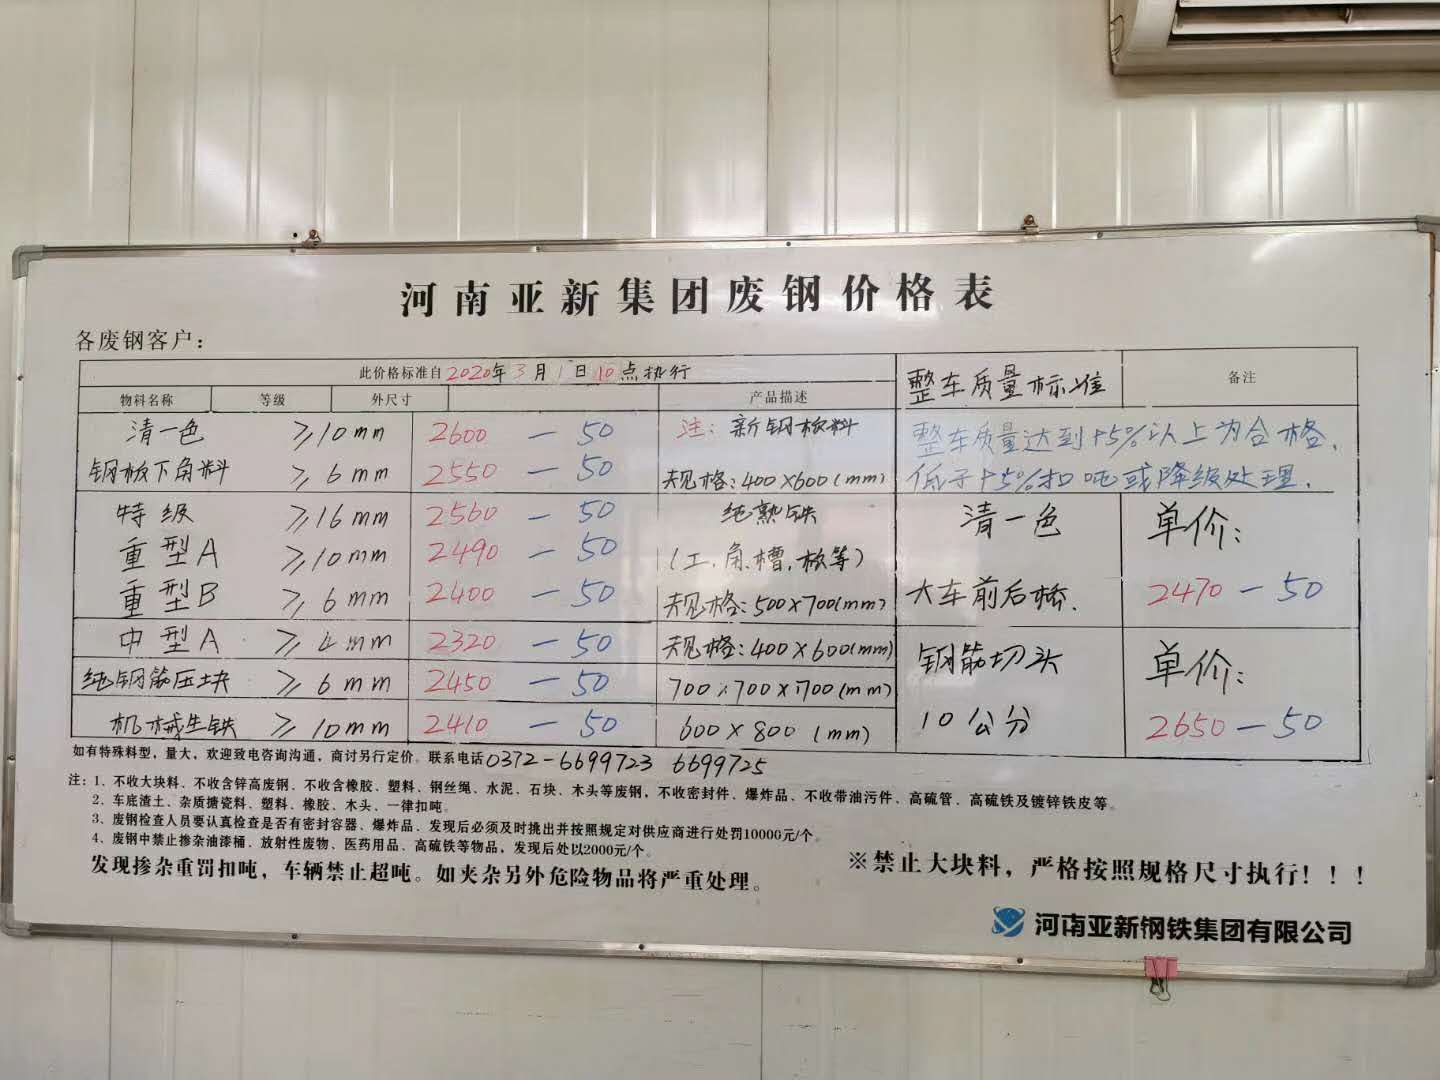 河南亚新集团废钢价格表
各废钢客户：
此价格标准自2020年3月1日10点执行
整车质量标准 备注
物料名称 等级 外尺寸 产品描述
清一色 ≥10mm 2600 - 50 注：新钢板料
整车质量达到+5%以上为合格，
钢板下角料 ≥6mm 2550 - 50 规格:400×600(mm)
低于+5%扣吨或降级处理.
特级 ≥16mm 2560 - 50 纯熟铁
清一色 单价:
重型A ≥10mm 2490 - 50 (工.角.槽.板等)
重型B ≥6mm 2400 - 50 规格:500×700(mm)
大车前后桥. 2470 - 50
中型A ≥4mm 2320 - 50 规格:400×600(mm)
钢筋切头 单价:
纯钢筋压块 ≥6mm 2450 - 50 700×700×700(mm)
机械生铁 ≥10mm 2410 - 50 600×800 (mm)
10公分 2650 - 50
如有特殊料型，量大，欢迎致电咨询沟通，商讨另行定价。联系电话0372-6699723 6699725
注：1、不收大块料、不收含锌高废钢、不收含橡胶、塑料、钢丝绳、水泥、石块、木头等废钢，不收密封件、爆炸品、不收带油污件、高硫管、高硫铁及镀锌铁皮等。
2、车底渣土、杂质搪瓷料、塑料、橡胶、木头、一律扣吨。
3、废钢检查人员要认真检查是否有密封容器、爆炸品、发现后必须及时挑出并按照规定对供应商进行处罚10000元/个。
4、废钢中禁止掺杂油漆桶、放射性废物、医药用品、高硫铁等物品，发现后处以2000元/个。
发现掺杂重罚扣吨，车辆禁止超吨。如夹杂另外危险物品将严重处理。
※禁止大块料，严格按照规格尺寸执行！！！
河南亚新钢铁集团有限公司